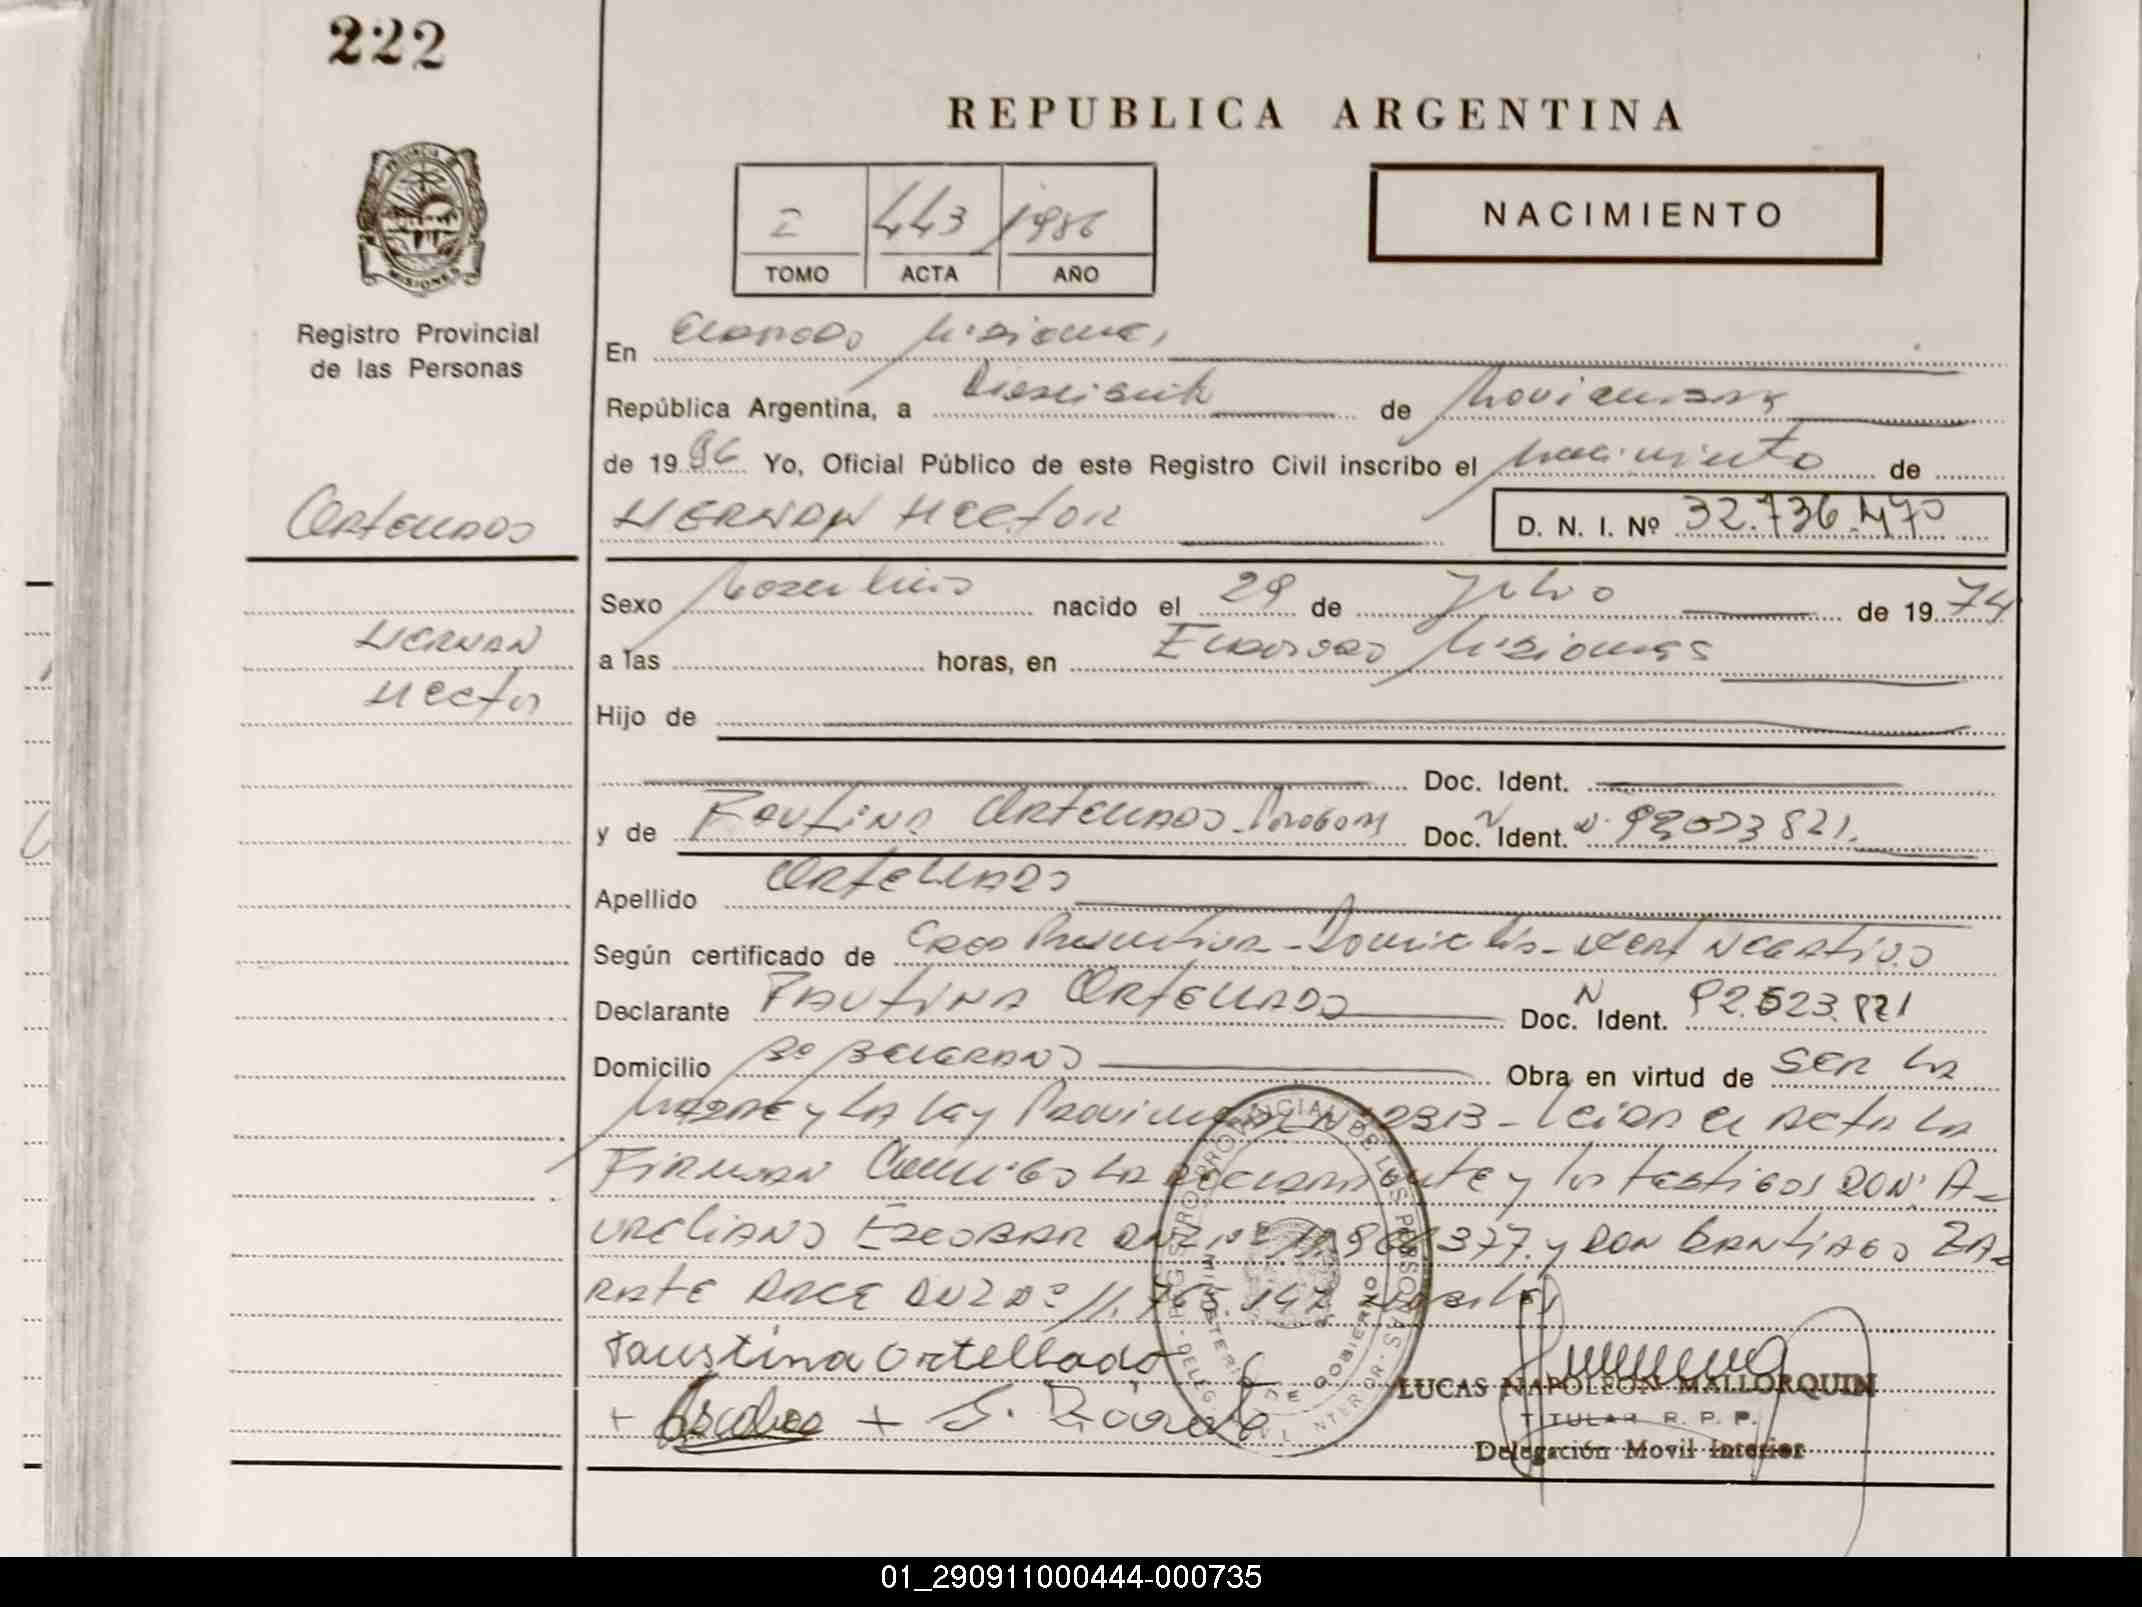 222
REPUBLICA ARGENTINA
NACIMIENTO
I 443 1986
TOMO ACTA AÑO
PROVINCIA DE
MISIONES
Registro Provincial
de las Personas
En Eldorado Misiones
República Argentina, a Diesisiete de Noviembre
de 1986 Yo, Oficial Público de este Registro Civil inscribo el nacimiento de
Ortellado
HERNAN Hector
D. N. I. Nº 32.736.470
Sexo Masculino nacido el 29 de Julio de 1974
HERNAN
Hector
a las horas, en Eldorado Misiones
Hijo de
Doc. Ident.
y de Faustina Ortellado Doc. Ident. Nº
Apellido Ortellado
Según certificado de Negativo
Declarante FAUSTINA ORTELLADO Doc. Ident. 92.623.821
Domicilio Bº BELGRANO Obra en virtud de SER LA
MADRE y LA Ley Provincial Nº 2313 - Leida el Acta LA
FIRMAN Conmigo LA Declarante y los testigos DON: A-
URELIANO ESCOBAR DNI Nº 377 y DON SANTIAGO ZA-
RATE DNI Nº 11.765.147
Faustina Ortellado
+ Escobar + S. Zárate
REGISTRO PROVINCIAL DE LAS PERSONAS
MINISTERIO DE GOBIERNO
LUCAS NAPOLEON MALLORQUIN
TITULAR R. P. P.
Delegación Movil Interior
01_290911000444-000735